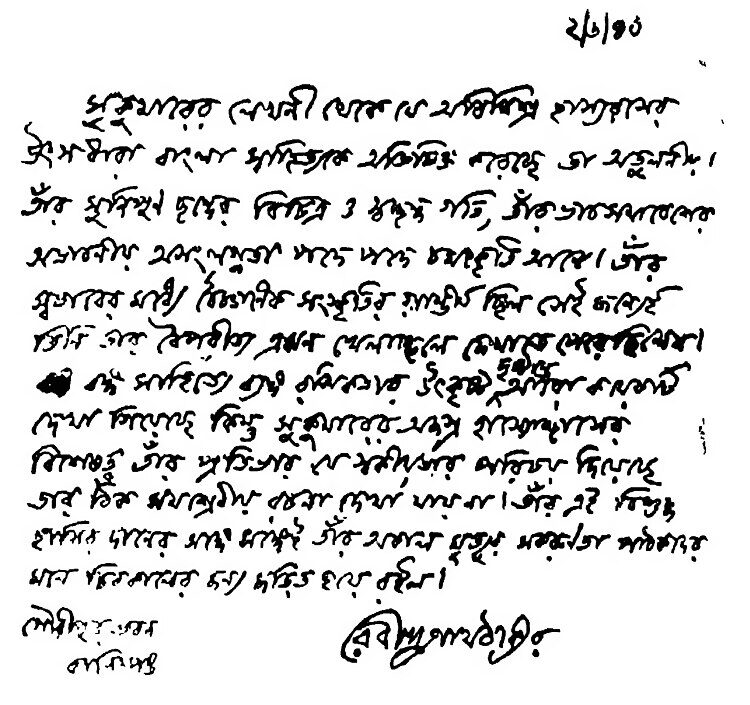 ২/৬/৪০
সুকুমারের লেখনী থেকে যে অবিমিশ্র হাস্যরসের
উৎসধারা বাংলা সাহিত্যকে অভিষিক্ত করেছে তা অতুলনীয়।
তাঁর সুনিপুণ ছন্দের বিচিত্র ও স্বচ্ছন্দ গতি, তাঁর ভাবসমাবেশের
অভাবনীয় অসংলগ্নতা পদে পদে চমৎকৃতি আনে। তাঁর
স্বভাবের মধ্যে বৈজ্ঞানিক সংস্কৃতির গাম্ভীর্য ছিল সেই জন্যেই
তিনি তার বৈপরীত্য এমন খেলাচ্ছলে দেখাতে পেরেছিলেন।
বঙ্গ সাহিত্যে ব্যঙ্গ রসিকতার উৎকৃষ্ট দৃষ্টান্ত আরো কয়েকটি
দেখা গিয়েছে কিন্তু সুকুমারের অজস্র হাস্যোচ্ছ্বাসের
বিশেষত্ব তাঁর প্রতিভার যে স্বকীয়তার পরিচয় দিয়েছে
তার ঠিক সমশ্রেণীয় রচনা দেখা যায় না। তাঁর এই বিশুদ্ধ
হাসির দানের সঙ্গে সঙ্গেই তাঁর অকাল মৃত্যুর সকরুণতা পাঠকদের
মনে চিরকালের জন্য জড়িত হয়ে রইল।
গৌরীপুর ভবন
কালিম্পঙ
রবীন্দ্রনাথ ঠাকুর